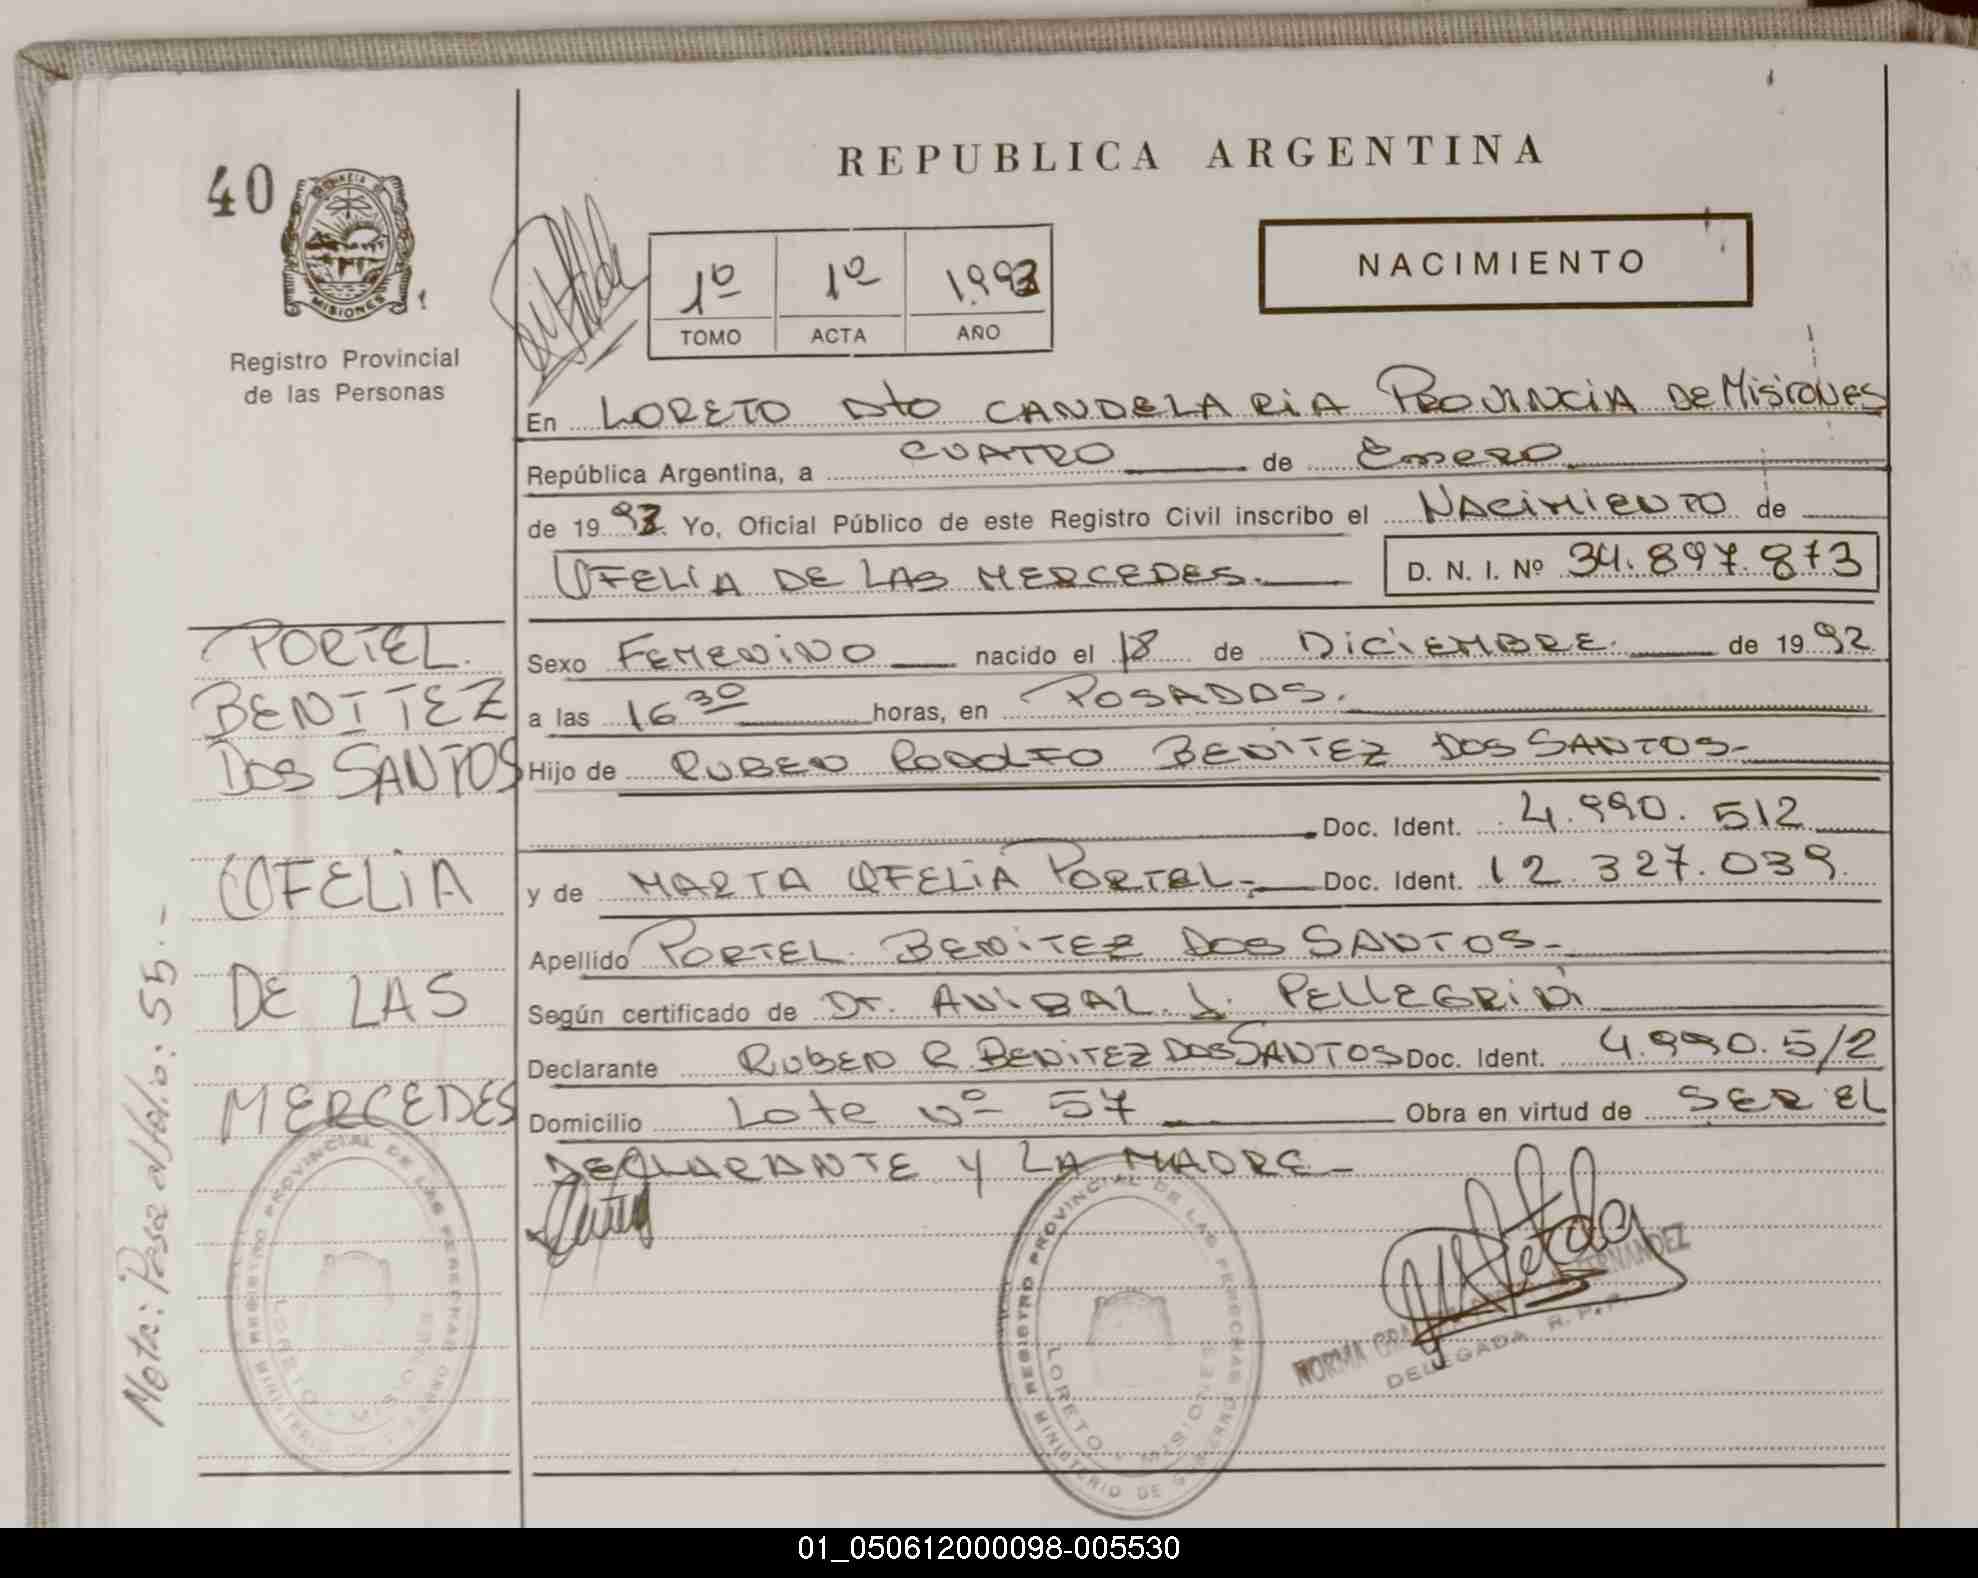 40
PROVINCIA DE
MISIONES
Registro Provincial
de las Personas
REPUBLICA ARGENTINA
1º 1º 1.993
TOMO ACTA AÑO
NACIMIENTO
En LORETO Dto CANDELARIA PROVINCIA DE MISIONES
República Argentina, a CUATRO de Enero
de 1993. Yo, Oficial Público de este Registro Civil inscribo el NACIMIENTO de
OFELIA DE LAS MERCEDES.
D. N. I. Nº 34.897.873
Sexo FEMENINO nacido el 18 de DICIEMBRE. de 1992
a las 16 30 horas, en POSADAS.
Hijo de RUBEN RODOLFO BENITEZ DOS SANTOS-
Doc. Ident. 4.990.512
y de MARTA OFELIA PORTEL- Doc. Ident. 12.327.039.
Apellido PORTEL BENITEZ DOS SANTOS-
Según certificado de Dr. ANIBAL J. PELLEGRINI
Declarante RUBEN R. BENITEZ DOS SANTOS Doc. Ident. 4.990.512
Domicilio Lote nº 57 Obra en virtud de SER EL
DECLARANTE y LA MADRE-
PORTEL.
BENITEZ
DOS SANTOS
OFELIA
DE LAS
MERCEDES
Nota: Pasa al folio: 55.-
REGISTRO PROVINCIAL DE LAS PERSONAS
MINISTERIO DE GOBIERNO
LORETO - MISIONES
REGISTRO PROVINCIAL DE LAS PERSONAS
MINISTERIO DE GOBIERNO
LORETO - MISIONES
NORMA FERNANDEZ
DELEGADA R. P. P.
01_050612000098-005530